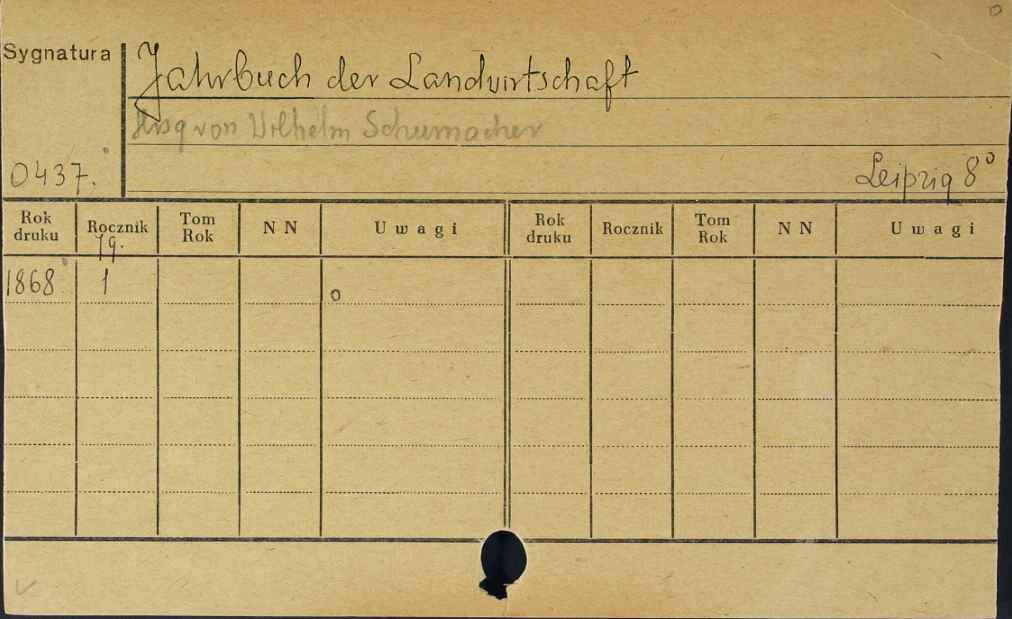 Sygnatura
Jahrbuch der Landwirtschaft
Hrsg von Wilhelm Schumacher
0437.
Leipzig 8°
Rok druku Rocznik Tom Rok N N Uwagi Rok druku Rocznik Tom Rok N N Uwagi
Jg.
1868 1 o